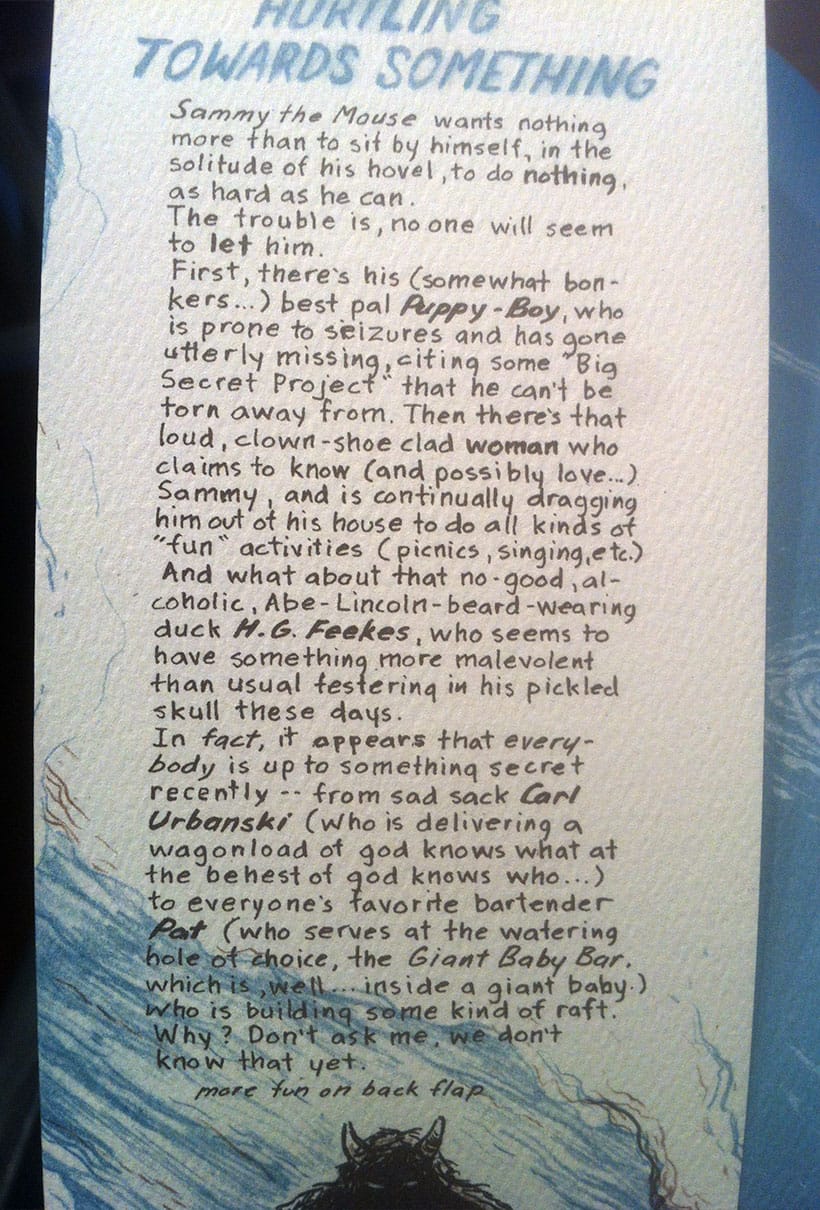 HURTLING
TOWARDS SOMETHING
Sammy the Mouse wants nothing
more than to sit by himself, in the
solitude of his hovel, to do nothing,
as hard as he can.
The trouble is, no one will seem
to let him.
First, there's his (somewhat bon-
kers...) best pal Puppy-Boy, who
is prone to seizures and has gone
utterly missing, citing some "Big
Secret Project" that he can't be
torn away from. Then there's that
loud, clown-shoe clad woman who
claims to know (and possibly love...)
Sammy, and is continually dragging
him out of his house to do all kinds of
"fun" activities (picnics, singing, etc.)
And what about that no-good, al-
coholic, Abe-Lincoln-beard-wearing
duck H.G. Feekes, who seems to
have something more malevolent
than usual festering in his pickled
skull these days.
In fact, it appears that every-
body is up to something secret
recently -- from sad sack Carl
Urbanski (who is delivering a
wagonload of god knows what at
the behest of god knows who...)
to everyone's favorite bartender
Pat (who serves at the watering
hole of choice, the Giant Baby Bar.
which is, well... inside a giant baby.)
who is building some kind of raft.
Why? Don't ask me, we don't
know that yet.
more fun on back flap